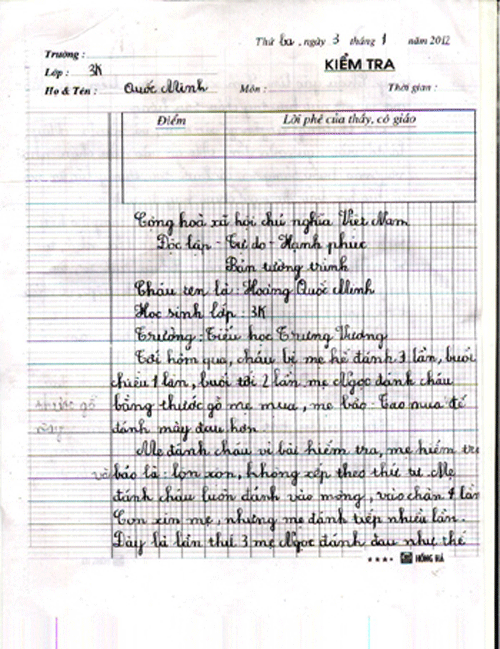 Thứ ba, ngày 3 tháng 1 năm 2012
Trường :
KIỂM TRA
Lớp : 3K
Họ & Tên : Quốc Minh Môn : Thời gian :
Điểm Lời phê của thầy, cô giáo
Cộng hoà xã hội chủ nghĩa Việt Nam
Độc lập - Tự do - Hạnh phúc
Bản tường trình
Cháu tên là : Hoàng Quốc Minh
Học sinh lớp : 3K
Trường : Tiểu học Trưng Vương
Tối hôm qua, cháu bị mẹ kế đánh 3 lần, buổi
chiều 1 lần, buổi tối 2 lần. mẹ Ngọc đánh cháu
bằng thước gỗ mẹ mua, mẹ bảo - Tao mua để
thước gỗ
này
đánh mày đau hơn.
Mẹ đánh cháu vì bài kiểm tra, mẹ kiểm tra
và bảo là : lộn xộn, không xếp theo thứ tự. Mẹ
đánh cháu luôn đánh vào mông, vào chân 4 lần
Con xin mẹ, nhưng mẹ đánh tiếp nhiều lần.
Đây là lần thứ 3 mẹ Ngọc đánh đau như thế
HỒNG HÀ